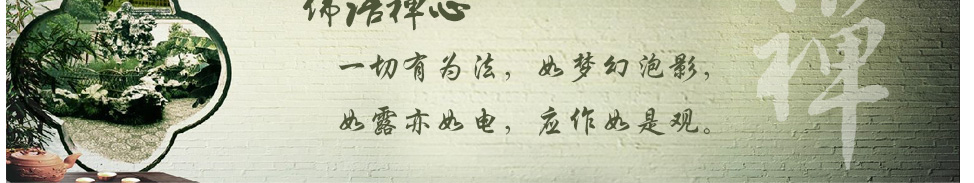 佛语禅心
一切有为法，如梦幻泡影，
如露亦如电，应作如是观。
禅